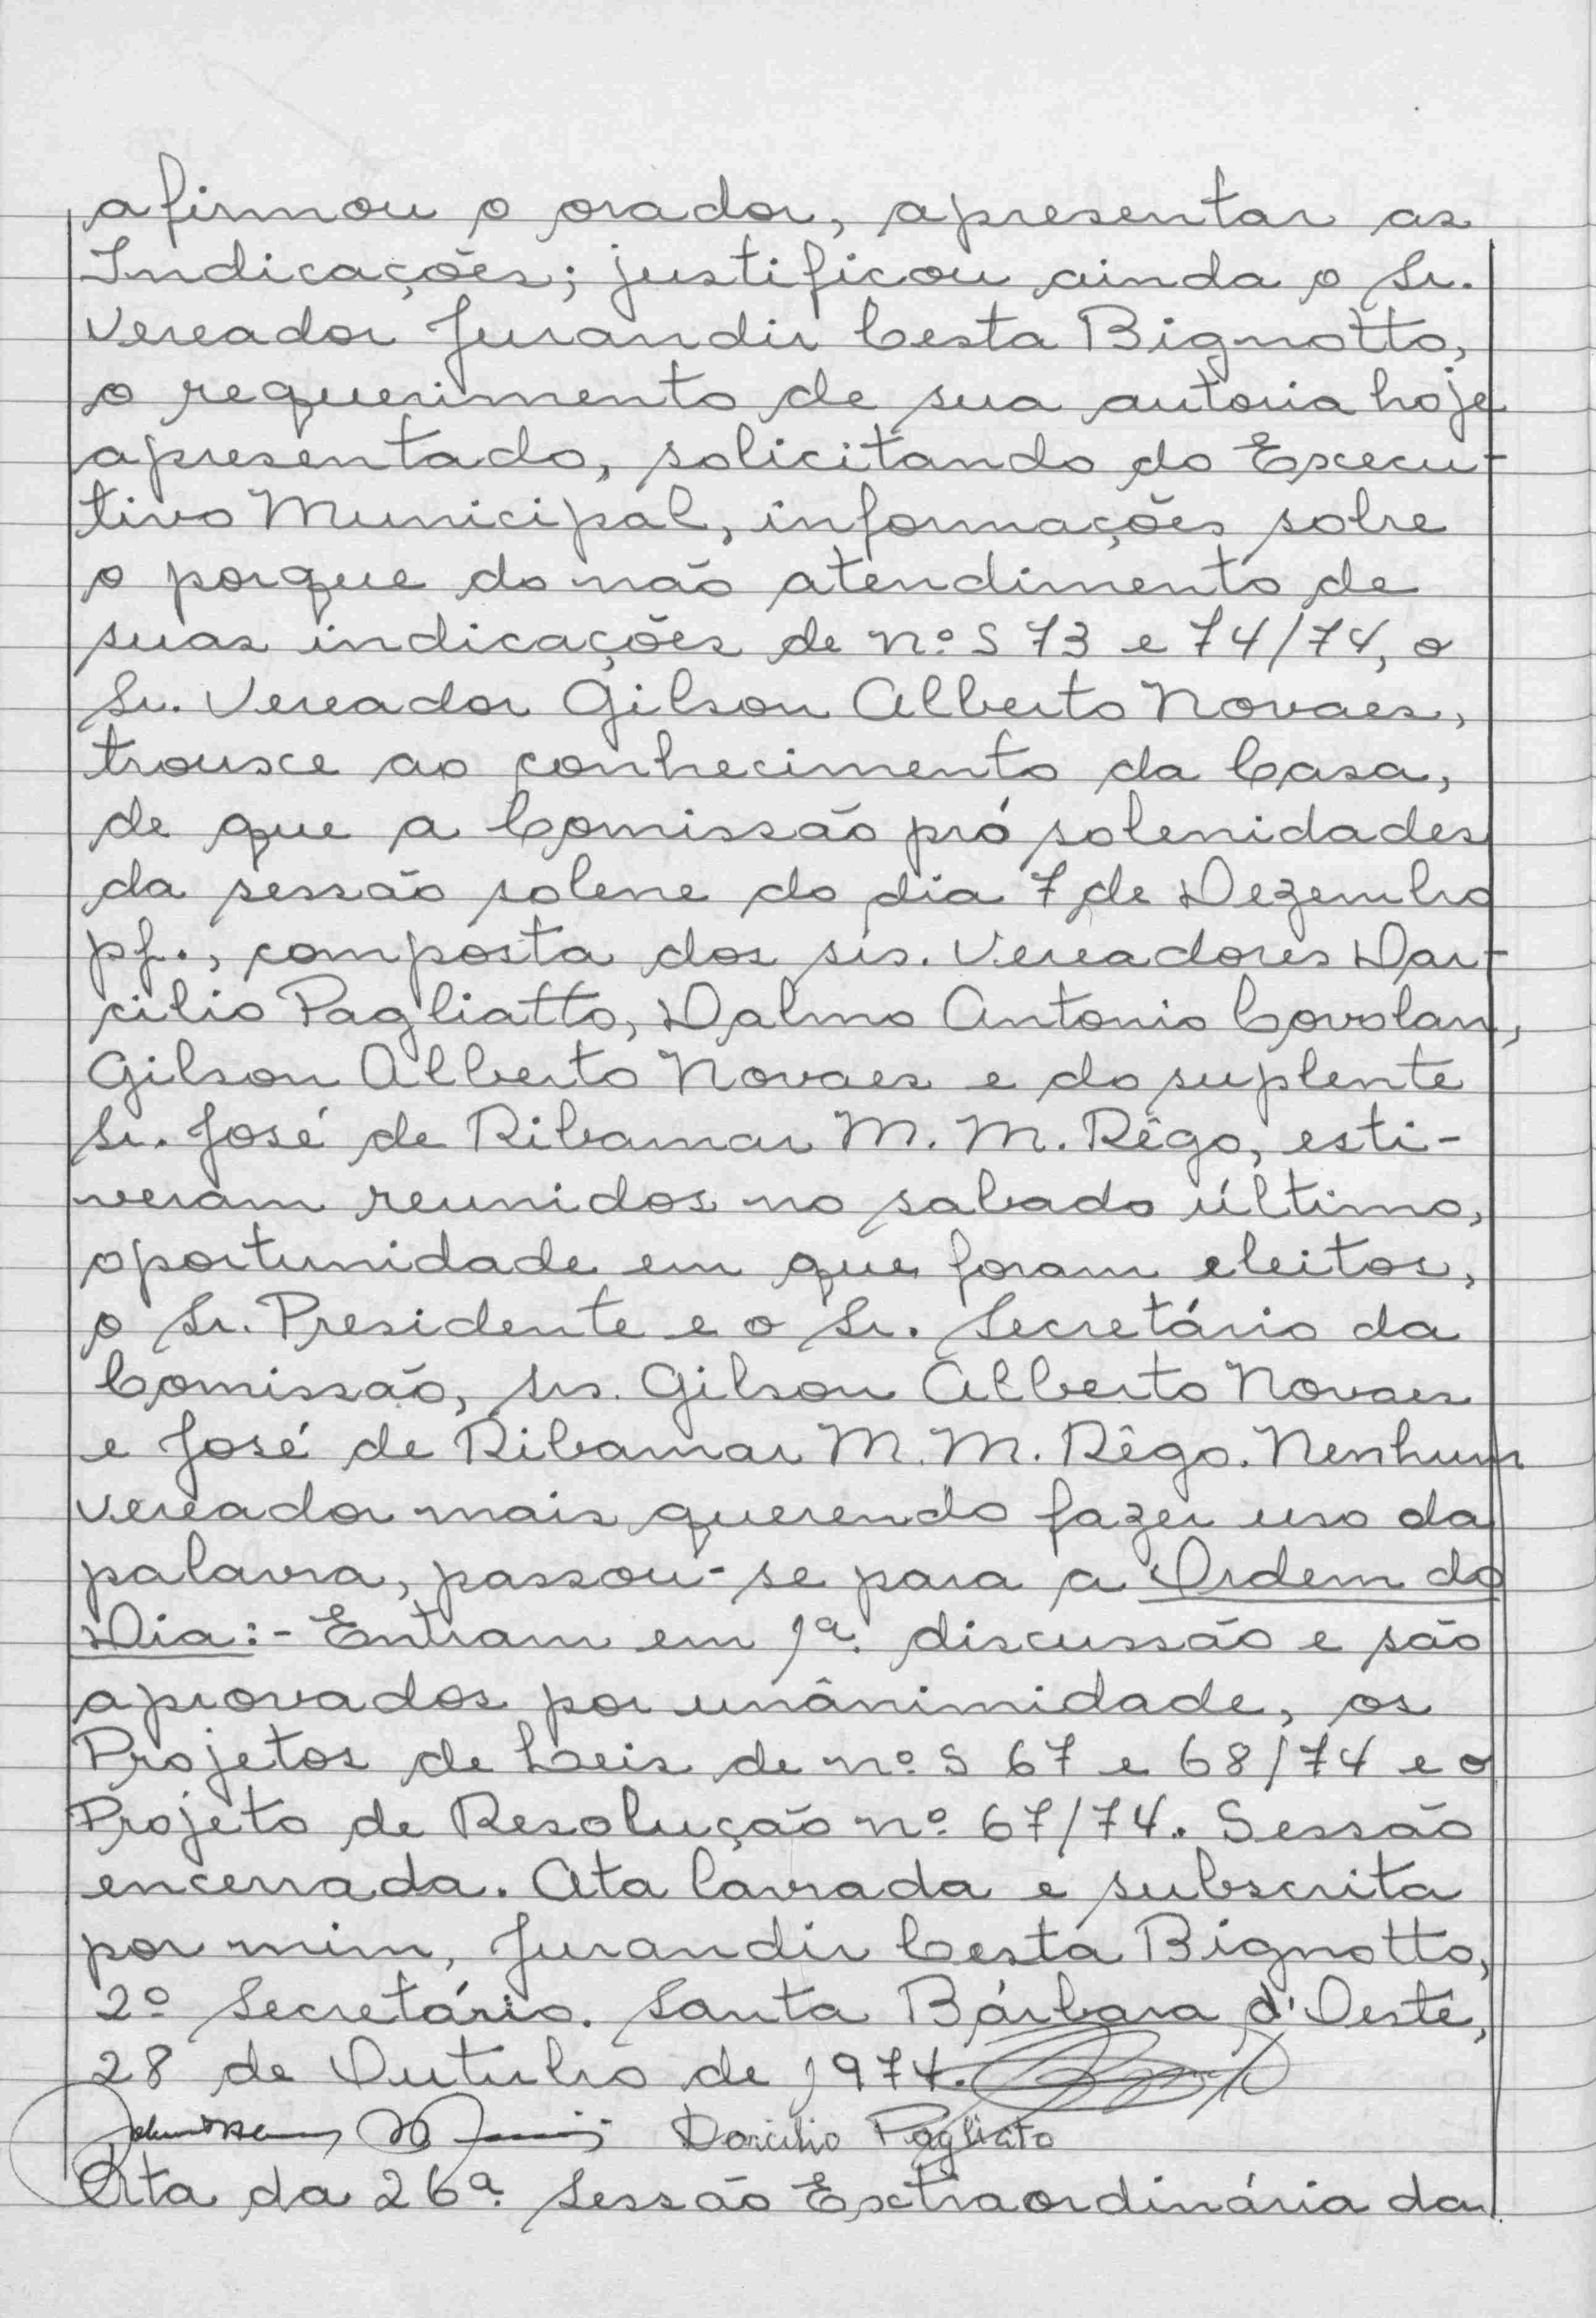 afirmou o orador, apresentar as
Indicações; justificou ainda o Sr.
Vereador Jurandir Cesta Bignotto,
o requerimento de sua autoria hoje
apresentado, solicitando do Execu-
tivo Municipal, informações sobre
o porque do não atendimento de
suas indicações de nºs 73 e 74/74, o
Sr. Vereador Gilson Alberto Novaes,
trouxe ao conhecimento da Casa,
de que a Comissão pró solenidades
da sessão solene do dia 7 de Dezembro
pf., composta dos srs. Vereadores Dar-
cilio Pagliatto, Dalmo Antonio Covolan,
Gilson Alberto Novaes e do suplente
Sr. José de Ribamar M. M. Rêgo, esti-
veram reunidos no sabado último,
oportunidade em que foram eleitos,
o Sr. Presidente e o Sr. Secretário da
Comissão, srs. Gilson Alberto Novaes
e José de Ribamar M. M. Rêgo. Nenhum
vereador mais querendo fazer uso da
palavra, passou-se para a Ordem do
Dia:- Entram em 1ª discussão e são
aprovados por unânimidade, os
Projetos de Leis de nºs 67 e 68/74 e o
Projeto de Resolução nº 67/74. Sessão
encerrada. Ata lavrada e subscrita
por mim, Jurandir Cesta Bignotto,
2º Secretário. Santa Bárbara d'Oeste,
28 de Outubro de 1974.
Darcilio Pagliato
Ata da 26ª Sessão Extraordinária da